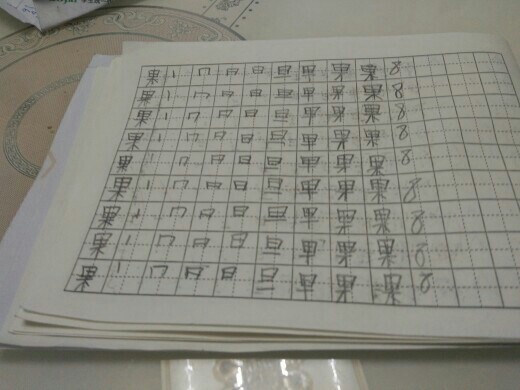 果 丨 冂 日 日 旦 早 果 果 8
果 丨 冂 日 日 旦 早 果 果 8
果 丨 冂 日 日 旦 早 果 果 8
果 丨 冂 日 日 旦 早 果 果 8
果 丨 冂 日 日 旦 早 果 果 8
果 丨 冂 日 日 旦 早 果 果 8
果 丨 冂 日 日 旦 早 果 果 8
果 丨 冂 日 日 旦 早 果 果 8
果 丨 冂 日 日 旦 早 果 果 8